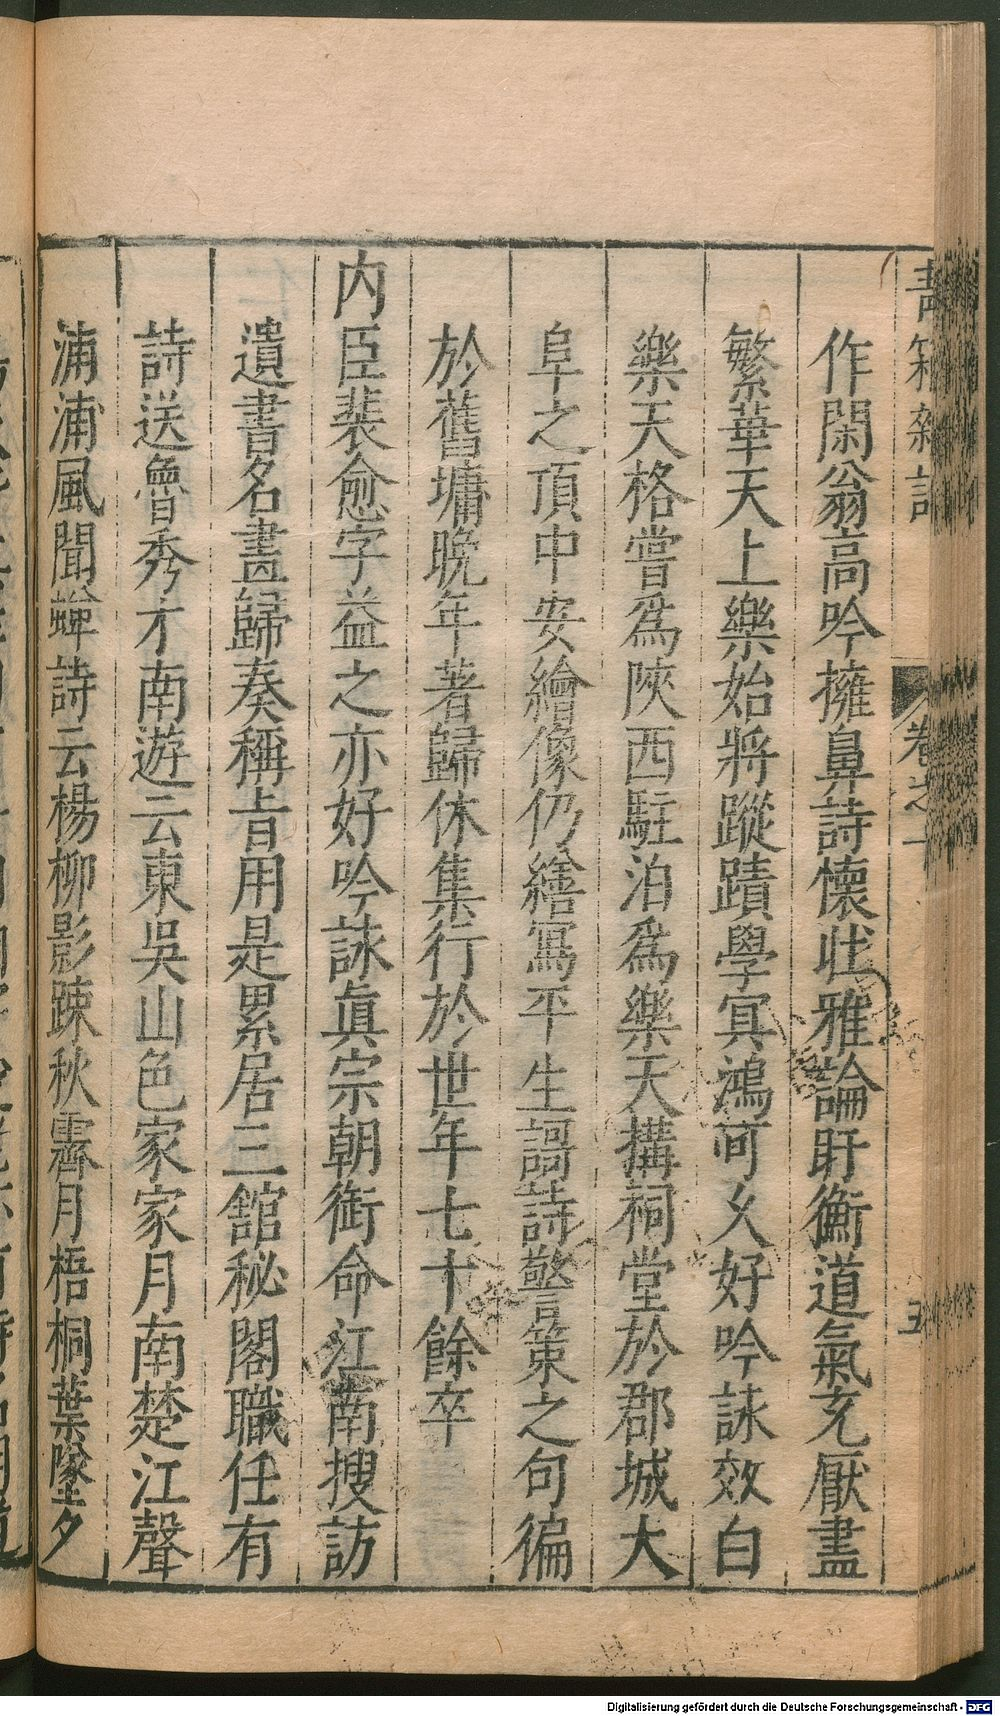 青箱雜記
卷之十
五
作閑翁高吟擁鼻詩懷壯雅論盱衡道氣充厭盡
繁華天上樂始將蹤蹟學冥鴻可久好吟詠效白
樂天格嘗爲陜西駐泊爲樂天搆祠堂於郡城大
阜之頂中安繪像仍繕寫平生謌詩警策之句徧
於舊墉晩年著歸休集行於世年七十餘卒
内臣裴愈字益之亦好吟詠眞宗朝銜命江南搜訪
遺書名畫歸奏稱旨用是累居三館秘閣職任有
詩送魯秀才南遊云東吳山色家家月南楚江聲
浦浦風聞蟬詩云楊柳影踈秋霽月梧桐葉墜夕
Digitalisierung gefördert durch die Deutsche Forschungsgemeinschaft - DFG